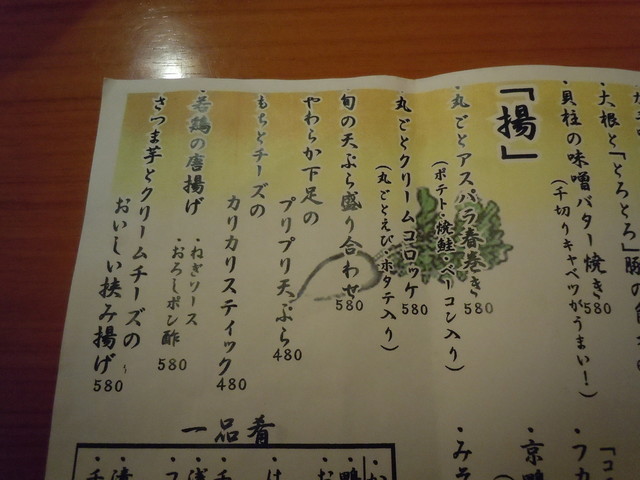 ・大根と「とろとろ」豚の
・貝柱の味噌バター焼き580
（千切りキャベツがうまい！）
「揚」
・丸ごとアスパラ春巻き580
（ポテト・焼鮭・ベーコン入り）
丸ごとクリームコロッケ580
（丸ごとえび・ホタテ入り）
旬の天ぷら盛り合わせ580
やわらか下足の
プリプリ天ぷら480
もちとチーズの
カリカリスティック480
・若鶏の唐揚げ
・ねぎソース
・おろしポン酢580
さつま芋とクリームチーズの
おいしい挟み揚げ580
・フカ
・京鴨
・みそ
一品肴